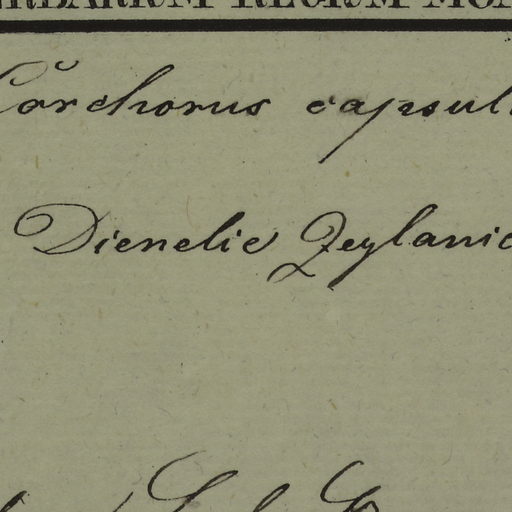 HERBARIUM REGIUM MON
Corchorus capsul
Dienelie Zeylanic